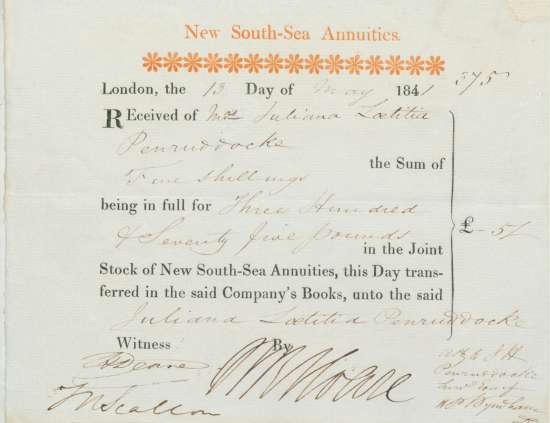 New South-Sea Annuities.
London, the 13 Day of May 1841 375
REceived of Mrs Juliana Lœtitia
Penruddocke
the Sum of
Five shillings
being in full for Three Hundred
& Seventy five pounds £ - 5/
in the Joint
Stock of New South-Sea Annuities, this Day trans-
ferred in the said Company's Books, unto the said
Juliana Lœtitia Penruddocke
Witness By
Deane Hoare
Penruddocke
Wyndham